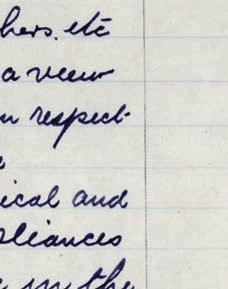 hers. etc
a view
n respect
ical and
pliances